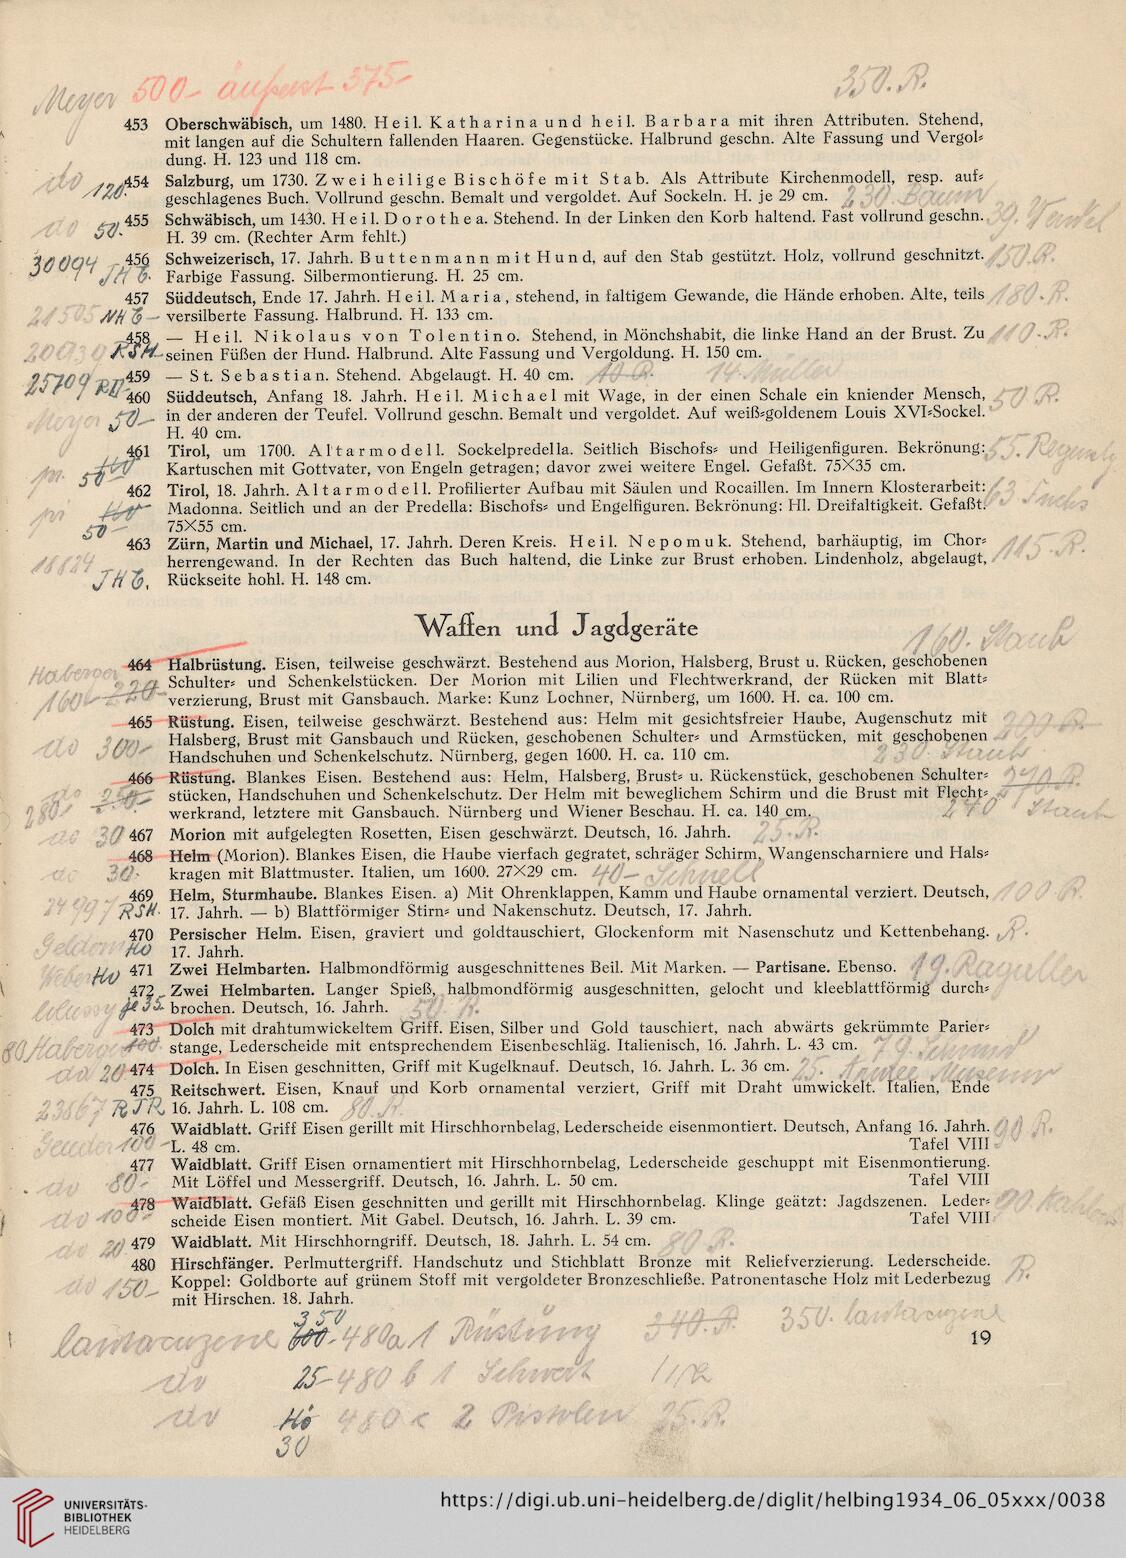 Meyer 500- äußerst 375- 350. R.
453 Oberschwäbisch, um 1480. Heil. Katharina und heil. Barbara mit ihren Attributen. Stehend,
mit langen auf die Schultern fallenden Haaren. Gegenstücke. Halbrund geschn. Alte Fassung und Vergol=
dung. H. 123 und 118 cm.
do 120 454 Salzburg, um 1730. Zwei heilige Bischöfe mit Stab. Als Attribute Kirchenmodell, resp. auf=
geschlagenes Buch. Vollrund geschn. Bemalt und vergoldet. Auf Sockeln. H. je 29 cm. 230. Baum
do 50.- 455 Schwäbisch, um 1430. Heil. Dorothea. Stehend. In der Linken den Korb haltend. Fast vollrund geschn. 39.
H. 39 cm. (Rechter Arm fehlt.)
30094 456 Schweizerisch, 17. Jahrh. Buttenmann mit Hund, auf den Stab gestützt. Holz, vollrund geschnitzt. 150. R.
Farbige Fassung. Silbermontierung. H. 25 cm.
21505 457 Süddeutsch, Ende 17. Jahrh. Heil. Maria, stehend, in faltigem Gewande, die Hände erhoben. Alte, teils 180.- R.
versilberte Fassung. Halbrund. H. 133 cm.
458 — Heil. Nikolaus von Tolentino. Stehend, in Mönchshabit, die linke Hand an der Brust. Zu 110.- R.
RSH seinen Füßen der Hund. Halbrund. Alte Fassung und Vergoldung. H. 150 cm.
25709 459 — St. Sebastian. Stehend. Abgelaugt. H. 40 cm. 10 R. 14. Müller
460 Süddeutsch, Anfang 18. Jahrh. Heil. Michael mit Wage, in der einen Schale ein kniender Mensch, 50 R.
Meyer 50- in der anderen der Teufel. Vollrund geschn. Bemalt und vergoldet. Auf weiß=goldenem Louis XVI=Sockel.
H. 40 cm.
461 Tirol, um 1700. Altarmodell. Sockelpredella. Seitlich Bischofs= und Heiligenfiguren. Bekrönung: 55.
50- Kartuschen mit Gottvater, von Engeln getragen; davor zwei weitere Engel. Gefaßt. 75×35 cm.
462 Tirol, 18. Jahrh. Altarmodell. Profilierter Aufbau mit Säulen und Rocaillen. Im Innern Klosterarbeit: 63 Fuchs
Madonna. Seitlich und an der Predella: Bischofs= und Engelfiguren. Bekrönung: Hl. Dreifaltigkeit. Gefaßt.
50- 75×55 cm.
463 Zürn, Martin und Michael, 17. Jahrh. Deren Kreis. Heil. Nepomuk. Stehend, barhäuptig, im Chor=
18824 herrengewand. In der Rechten das Buch haltend, die Linke zur Brust erhoben. Lindenholz, abgelaugt, 115. R.
Rückseite hohl. H. 148 cm.
Waffen und Jagdgeräte
160. Staub
464 Halbrüstung. Eisen, teilweise geschwärzt. Bestehend aus Morion, Halsberg, Brust u. Rücken, geschobenen
160 220- Schulter= und Schenkelstücken. Der Morion mit Lilien und Flechtwerkrand, der Rücken mit Blatt=
verzierung, Brust mit Gansbauch. Marke: Kunz Lochner, Nürnberg, um 1600. H. ca. 100 cm.
465 Rüstung. Eisen, teilweise geschwärzt. Bestehend aus: Helm mit gesichtsfreier Haube, Augenschutz mit
do 300- Halsberg, Brust mit Gansbauch und Rücken, geschobenen Schulter= und Armstücken, mit geschobenen
Handschuhen und Schenkelschutz. Nürnberg, gegen 1600. H. ca. 110 cm. 230. Staub
466 Rüstung. Blankes Eisen. Bestehend aus: Helm, Halsberg, Brust= u. Rückenstück, geschobenen Schulter= 270 R.
do 250.- stücken, Handschuhen und Schenkelschutz. Der Helm mit beweglichem Schirm und die Brust mit Flecht=
280.- werkrand, letztere mit Gansbauch. Nürnberg und Wiener Beschau. H. ca. 140 cm. 240 Staub
do 30 467 Morion mit aufgelegten Rosetten, Eisen geschwärzt. Deutsch, 16. Jahrh. 25.- R.
468 Helm (Morion). Blankes Eisen, die Haube vierfach gegratet, schräger Schirm, Wangenscharniere und Hals=
do 30.- kragen mit Blattmuster. Italien, um 1600. 27×29 cm. 40- Schnell
469 Helm, Sturmhaube. Blankes Eisen. a) Mit Ohrenklappen, Kamm und Haube ornamental verziert. Deutsch, 100 R.
24997 RSH. 17. Jahrh. — b) Blattförmiger Stirn= und Nakenschutz. Deutsch, 17. Jahrh.
470 Persischer Helm. Eisen, graviert und goldtauschiert, Glockenform mit Nasenschutz und Kettenbehang. R.
17. Jahrh.
471 Zwei Helmbarten. Halbmondförmig ausgeschnittenes Beil. Mit Marken. — Partisane. Ebenso. 19.
472 Zwei Helmbarten. Langer Spieß, halbmondförmig ausgeschnitten, gelocht und kleeblattförmig durch=
je 35. brochen. Deutsch, 16. Jahrh. 50. R.
473 Dolch mit drahtumwickeltem Griff. Eisen, Silber und Gold tauschiert, nach abwärts gekrümmte Parier=
80 100 stange, Lederscheide mit entsprechendem Eisenbeschläg. Italienisch, 16. Jahrh. L. 43 cm. 79. Schmid
do 20 474 Dolch. In Eisen geschnitten, Griff mit Kugelknauf. Deutsch, 16. Jahrh. L. 36 cm. 25. Armee Museum
475 Reitschwert. Eisen, Knauf und Korb ornamental verziert, Griff mit Draht umwickelt. Italien, Ende
23867 16. Jahrh. L. 108 cm. 80. R.
476 Waidblatt. Griff Eisen gerillt mit Hirschhornbelag, Lederscheide eisenmontiert. Deutsch, Anfang 16. Jahrh. 90 R.
100- L. 48 cm. Tafel VIII
477 Waidblatt. Griff Eisen ornamentiert mit Hirschhornbelag, Lederscheide geschuppt mit Eisenmontierung.
do 80- Mit Löffel und Messergriff. Deutsch, 16. Jahrh. L. 50 cm. Tafel VIII
478 Waidblatt. Gefäß Eisen geschnitten und gerillt mit Hirschhornbelag. Klinge geätzt: Jagdszenen. Leder= 90.
do 100- scheide Eisen montiert. Mit Gabel. Deutsch, 16. Jahrh. L. 39 cm. Tafel VIII
do 20 479 Waidblatt. Mit Hirschhorngriff. Deutsch, 18. Jahrh. L. 54 cm. 80 R.
480 Hirschfänger. Perlmuttergriff. Handschutz und Stichblatt Bronze mit Reliefverzierung. Lederscheide.
do 150- Koppel: Goldborte auf grünem Stoff mit vergoldeter Bronzeschließe. Patronentasche Holz mit Lederbezug R.
mit Hirschen. 18. Jahrh.
350
600.- 480a 1 Rüstung 340. R. 350.
19
do 25- 480 b 1 Schwert
do 480 c 2 Pistolen 25. R.
30
UNIVERSITÄTS-
BIBLIOTHEK
HEIDELBERG
https://digi.ub.uni-heidelberg.de/diglit/helbing1934_06_05xxx/0038